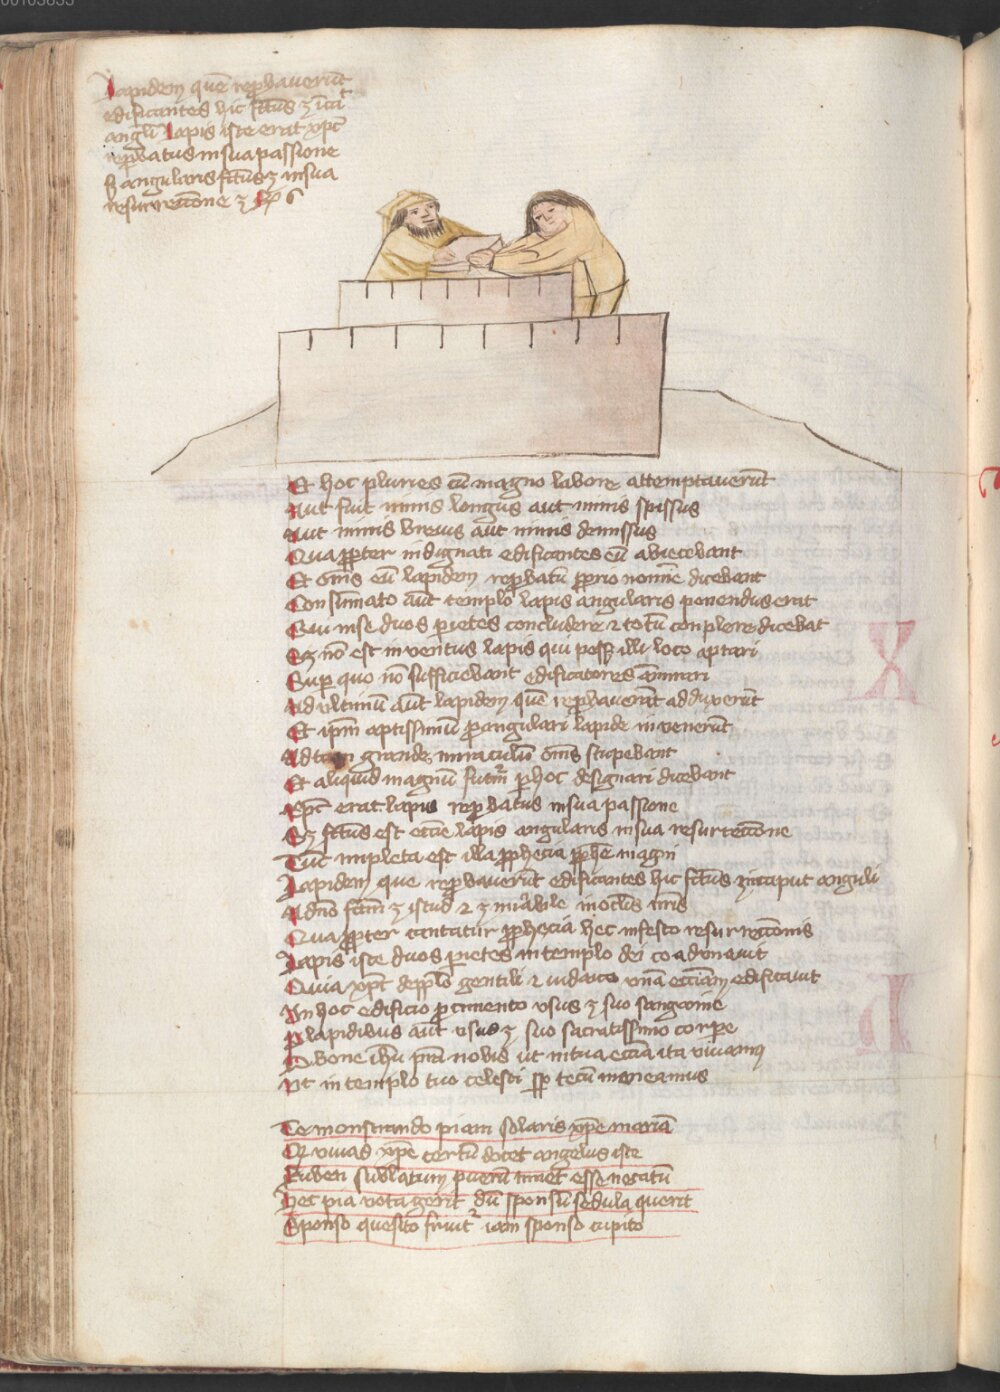 00103855
Lapidem quē reprobauerūt
edificantes hic fc̄us ē ī cā
anguli Lapis iste erat xp̄c
reprobatus in sua passione
S angularis fc̄us ē in sua
resurrectione
Et hoc pluries cū magno labore attemptauerūt
Aut fuit nimis longus aut nimis spissus
Aut nimis breuis aut nimis demissus
Quapp̄ter indignati edificantes eū abiecebant
Et om̄s eū lapidem reprobatū prop̄rio nomīe dicebant
Consūmato aūt templo lapis angularis ponendus erat
Qui in se duos parietes concludere ⁊ totū complere dicebat
Sꝫ nō est inuentus lapis qui possꝫ illi loco aptari
Sup quo nō sufficiebant edificatores āmirari
Ad vltimū aūt lapidem quē reprobauerāt adduxerūt
Et ip̄m aptissimū pro angulari lapide inuenerūt
Ad tam grande miraculū om̄s stupebant
Et aliquid magnū futūr p hoc designari dicebant
Xp̄c erat lapis reprobatus in sua passione
Sꝫ fc̄us est ecc̄ie lapis angularis in sua resurrectione
Tūc impleta est illa pp̄hecia pp̄he magni
Lapidem que reprobauerūt edificantes hic fc̄us ē in caput anguli
A dn̄o fc̄m ē istud ⁊ ē mirābile in oc̄lis nr̄is
Quapp̄ter cantatur pp̄hecia hec in festo resurrectōnis
Lapis iste duos parietes in templo dei coadunauit
Quia xp̄c de pp̄lo gentili ⁊ iudaico vnā ecc̄iam edificauit
In hoc edificio pro cimento vsus ē suo sangwine
P lapidibus aūt vsus ē suo sacratissimo corpe
O bone ih̄u p̄sta nobis ut in tua ecc̄ia ita viuamꝰ
Ut in templo tuo celesti sp̄ tecū maneamus
Te monstrando piam solaris xp̄e mariā
Qꝫ viuas xp̄e certū docet angelus iste
Ruben sublatum puerū timet esse necatū
Hec pia vota gerit dū sponsū sedula querit
Sponso quesito fruit² iam sponso cupito